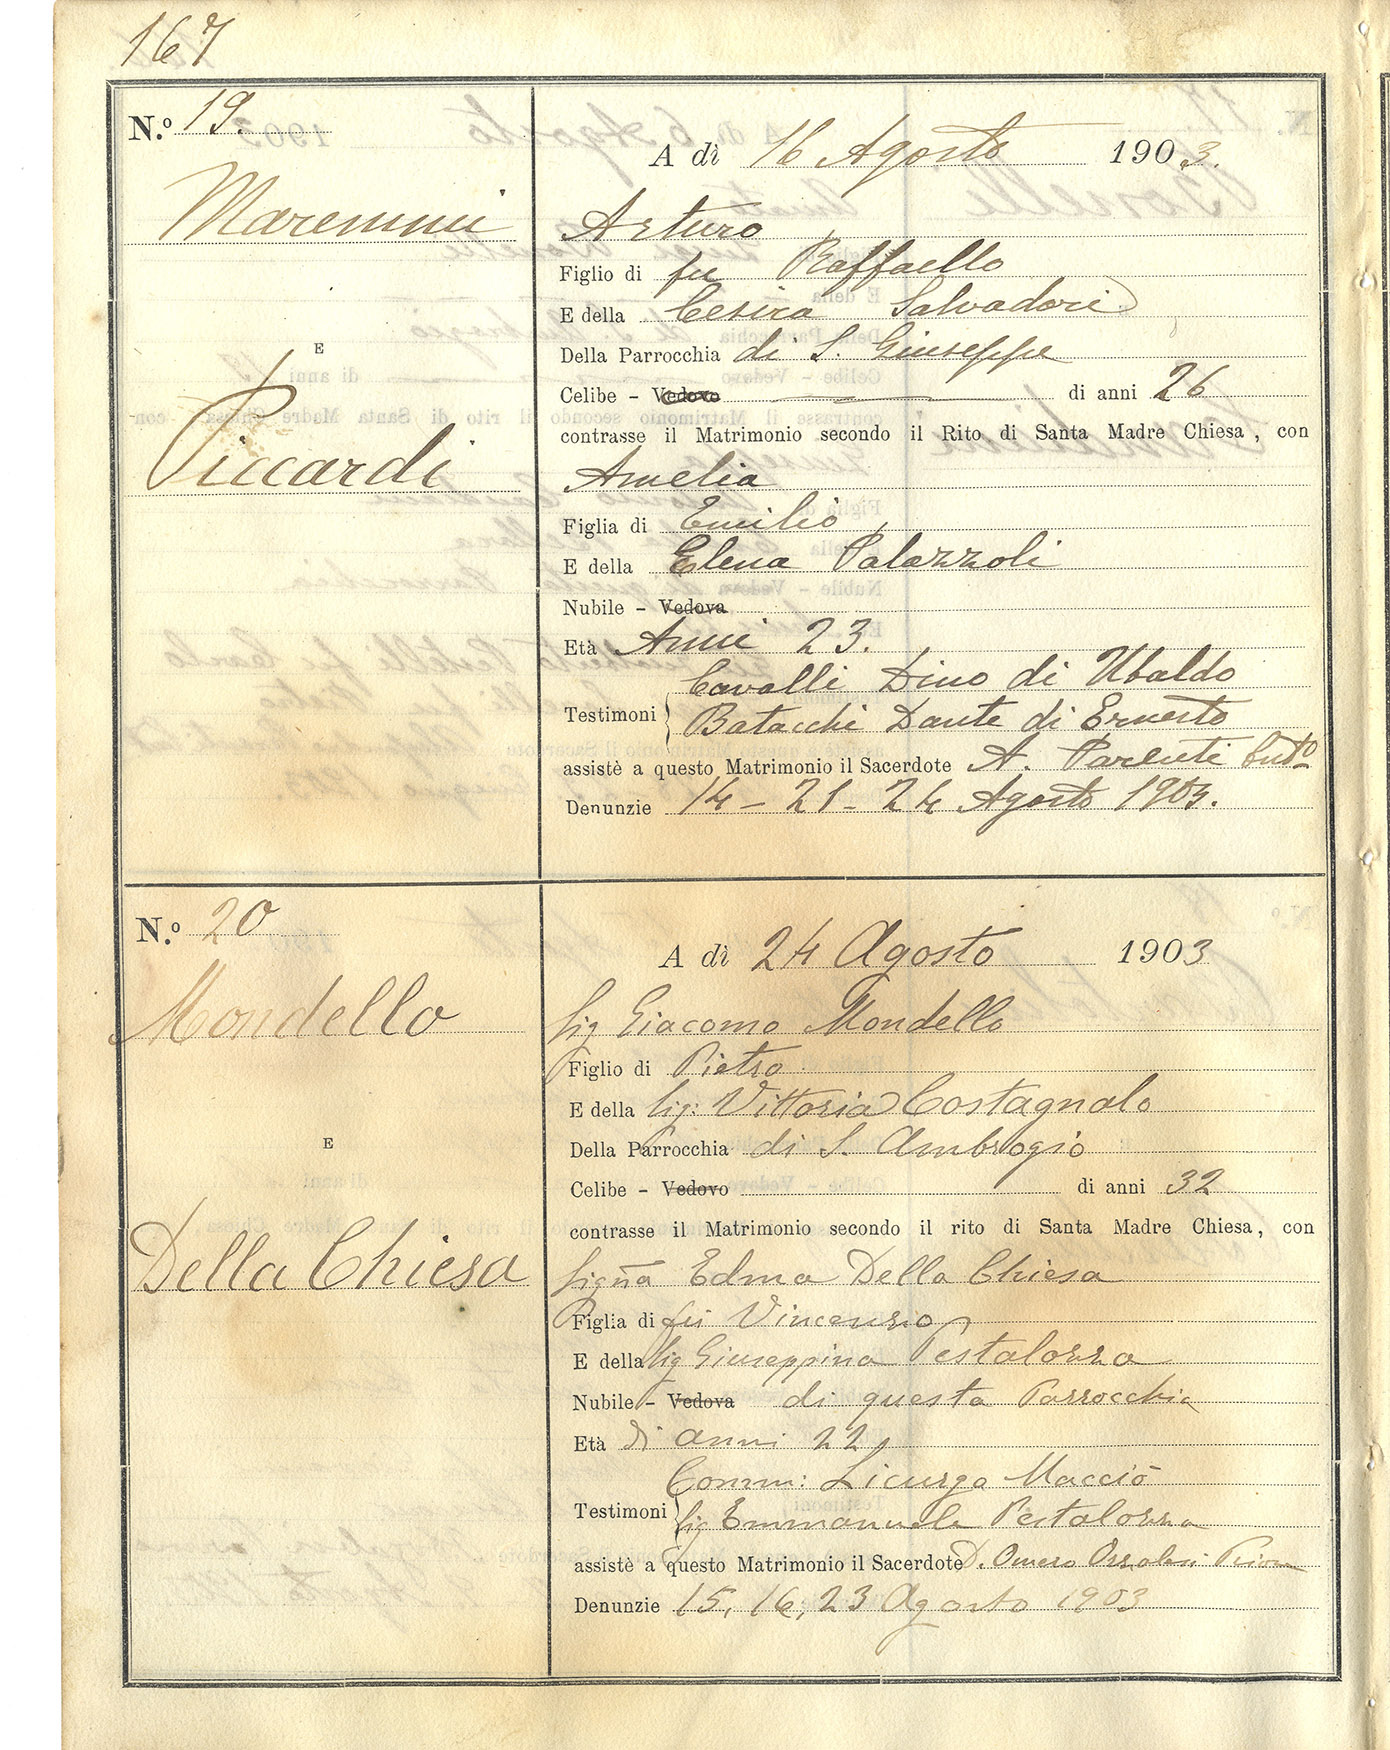 167
N.º 19.
Maremmi
E
Piccardi
A dì 16 Agosto 1903.
Arturo
Figlio di fu Raffaello
E della Cesira Salvadori
Della Parrocchia di S. Giuseppe
Celibe - Vedovo di anni 26
contrasse il Matrimonio secondo il Rito di Santa Madre Chiesa, con
Amelia
Figlia di Emilio
E della Elena Palazzoli
Nubile - Vedova
Età Anni 23.
Testimoni Cavalli Dino di Ubaldo
Batacchi Dante di Ernesto
assistè a questo Matrimonio il Sacerdote A. Parenti
Denunzie 14 - 21 - 24 Agosto 1903.
N.º 20
Mondello
E
Della Chiesa
A dì 24 Agosto 1903
Sig Giacomo Mondello
Figlio di Pietro
E della Sig: Vittoria Costagnalo
Della Parrocchia di S. Ambrogio
Celibe - Vedovo di anni 32
contrasse il Matrimonio secondo il rito di Santa Madre Chiesa, con
Sigña Edma Della Chiesa
Figlia di fu Vincenzio
E della Sig Giuseppina Pestalozza
Nubile - Vedova di questa Parrocchia
Età di anni 22
Testimoni Comm: Licurgo Macciò
Sig Emmanuele Pestalozza
assistè a questo Matrimonio il Sacerdote D. Omero
Denunzie 15, 16, 23 Agosto 1903